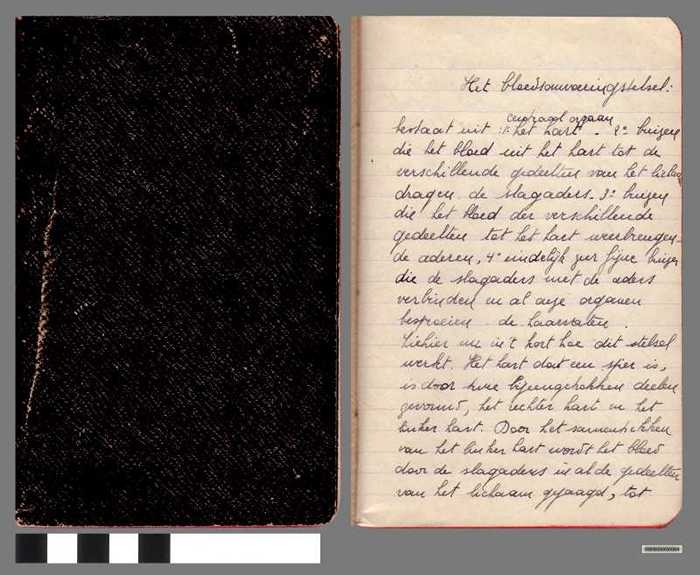 Het bloedsomvoeringstelsel:
centraal orgaan
bestaat uit : 1° het hart - 2° buizen
die het bloed uit het hart tot de
verschillende gedeelten van het lichaam
dragen de slagaders - 3° buizen
die het bloed der verschillende
gedeelten tot het hart weerbrengen
de aderen, 4° eindelijk zeer fijne buizen
die de slagaders met de aders
verbinden en al onze organen
besproeien de haarvaten.
Ziehier nu in 't kort hoe dit stelsel
werkt. Het hart dat een spier is,
is door twee bijeengetrokken deelen
gevormd, het rechter hart en het
linker hart. Door het samentrekken
van het linker hart wordt het bloed
door de slagaders in al de gedeelten
van het lichaam gejaagd, tot